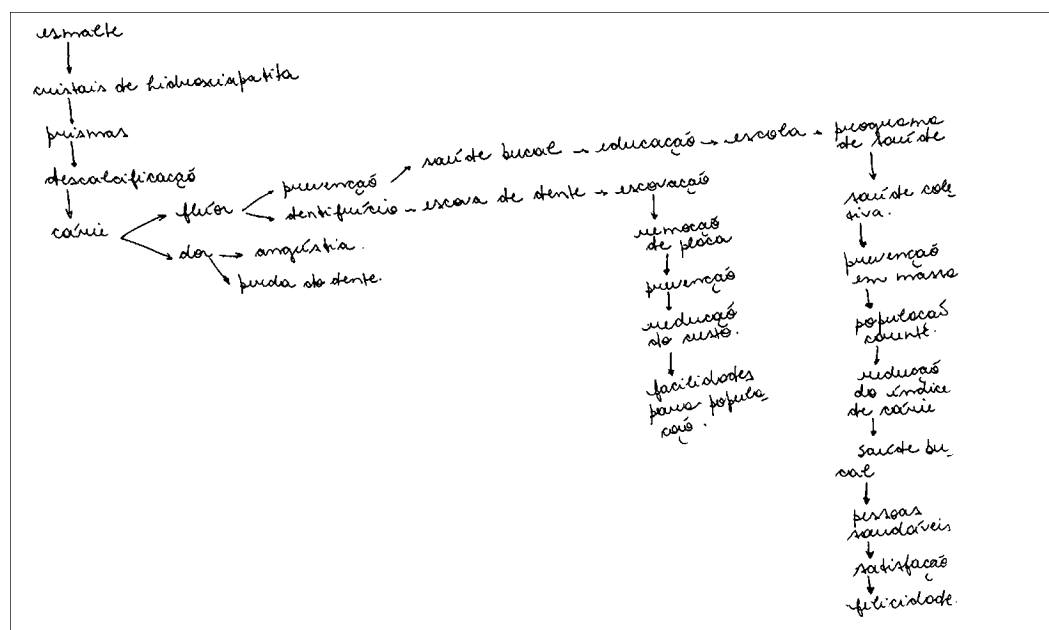 esmalte
cristais de hidroxiapatita
prismas
descalcificação
cárie
flúor
prevenção
saúde bucal → educação → escola → programa
de saúde
saúde cole
tiva.
prevenção
em massa
população
carente.
redução
do índice
de cárie
saúde bu-
cal
pessoas
saudáveis
satisfação
felicidade.
dentifrício → escova de dente → escovação
remoção
de placa
prevenção
redução
do custo.
facilidades
para popula-
ção.
dor → angústia.
perda do dente.